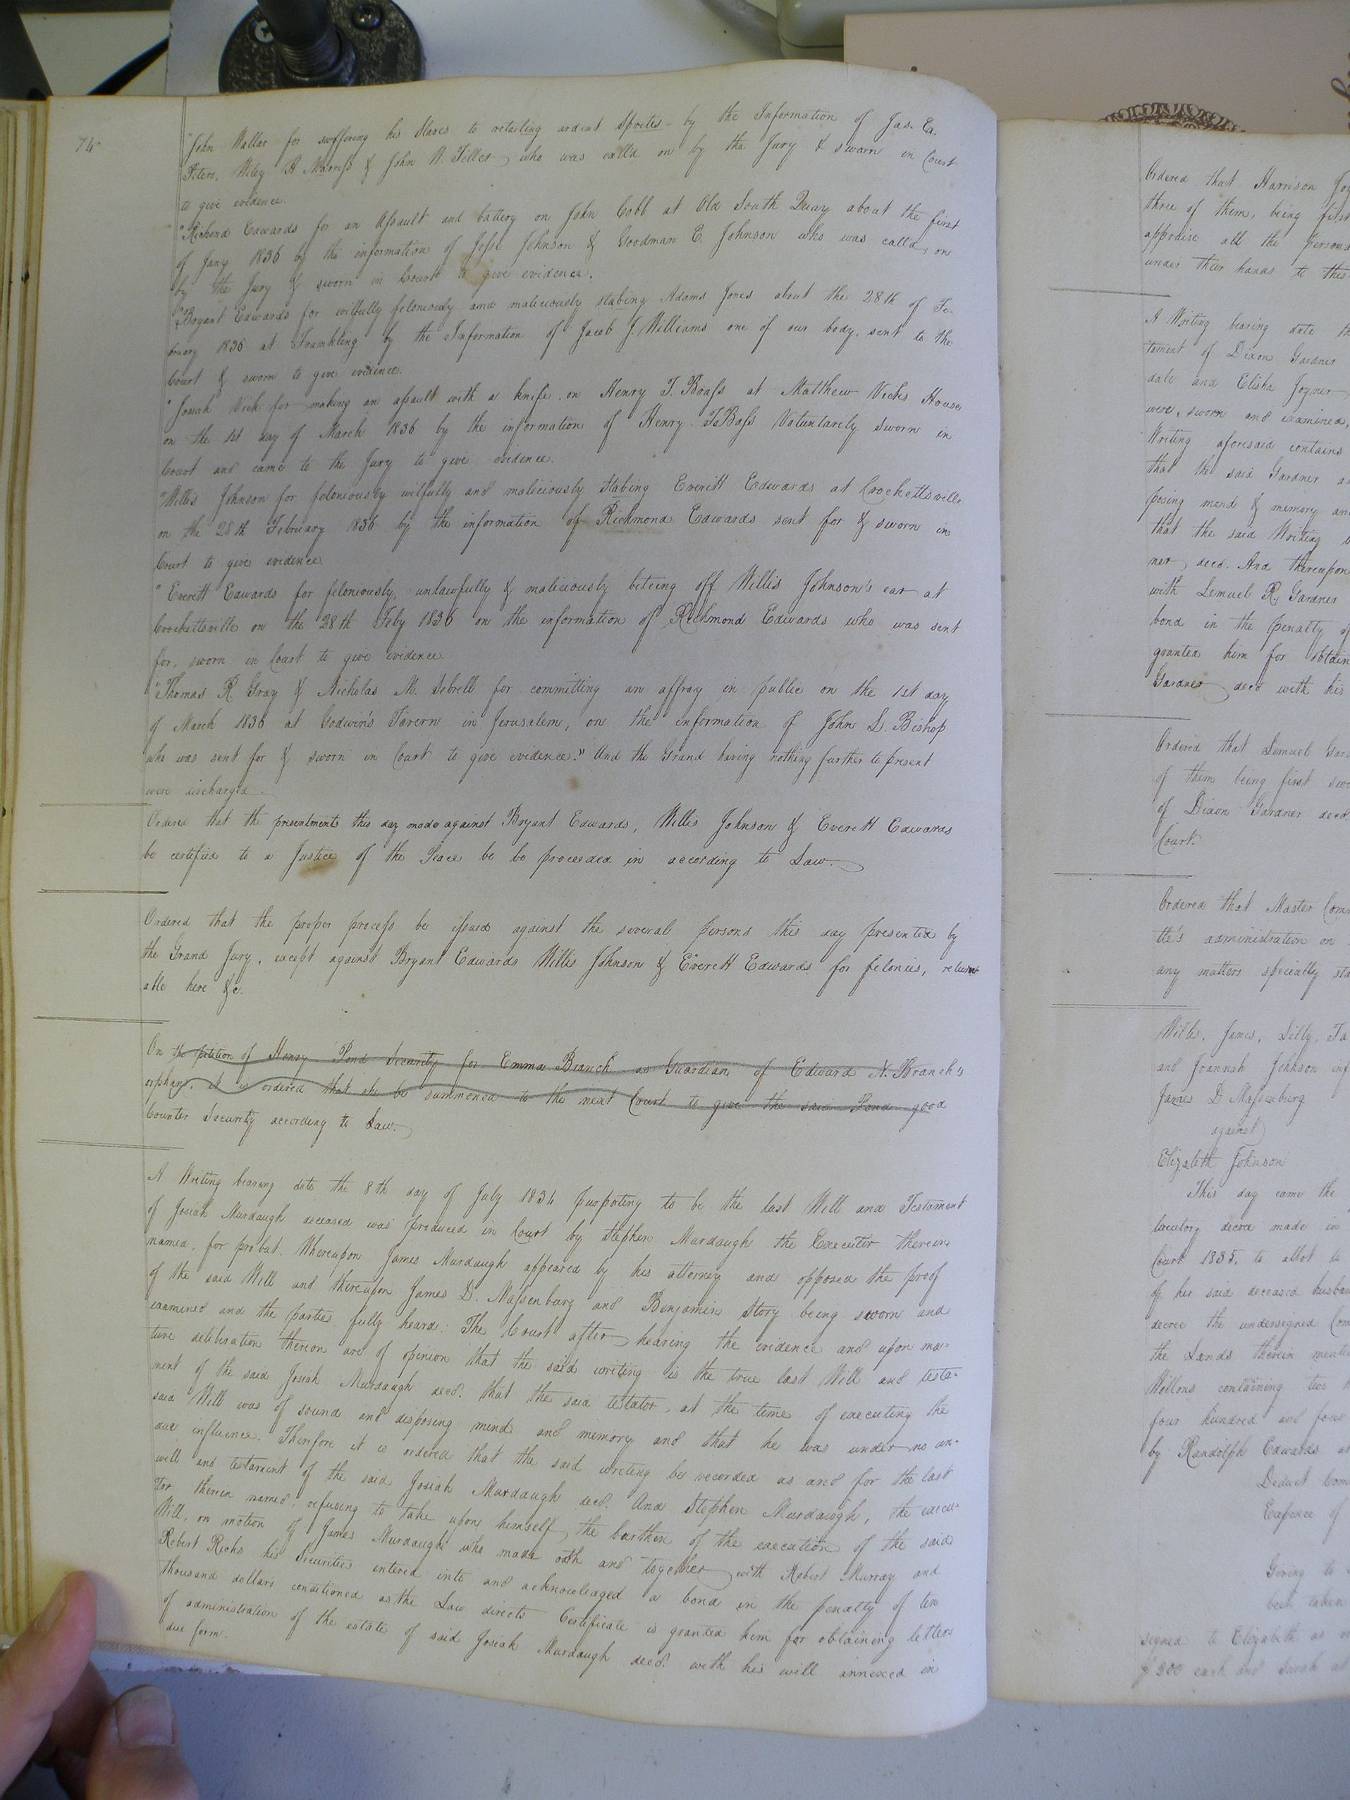 74
"John Waller for suffering his slaves to retailing ardent Sprites by the Information of Jas. Ed.
Peters, Wiley H & John W. who was calld on by the Jury & sworn in Court
to give evidence.
"Richard Edwards for an Assault and battery on John Cobb at Old South Quay about the first
of Jany 1836 by the information of Jesse Johnson & Goodman E. Johnson who was calld on
by the Jury & sworn in Court to give evidence.
"Bryant Edwards for wilfully feloniously and maliciously stabing Adams Jones about the 28th of Fe-
bruary 1836 at by the Information of Jacob J Williams one of our body, sent to the
Court & sworn to give evidence.
"Josiah Vick for making an assault with a knife on Henry T. Bass at Matthew Vicks House,
on the 1st day of March 1836 by the information of Henry T. Bass Voluntarily sworn in
Court and came to the Jury to give evidence.
"Willis Johnson for feloniously wilfully and maliciously stabing Everett Edwards at Crockettsville
on the 28th February 1836 by the information of Richmond Edwards sent for & sworn in
Court to give evidence
"Everett Edwards for feloniously, unlawfully & maliciously biteing off Willis Johnson's ear at
Crockettsville on the 28th Feby 1836 on the information of Richmond Edwards who was sent
for, sworn in Court to give evidence
"Thomas R. Gray & Nicholas M. Sebrell for committing an affray in public on the 1st day
of March 1836 at Godwin's Tavern in Jerusalem, on the information of John L. Bishop
who was sent for & sworn in Court to give evidence." And the Grand having nothing further to present
were discharged.
Ordered that the presentments this day made against Bryant Edwards, Willis Johnson & Everett Edwards
be certified to a Justice of the Peace be be proceeded in according to Law.
Ordered that the proper process be issued against the several persons this day presented by
the Grand Jury, except against Bryant Edwards Willis Johnson & Everett Edwards for felonies, return
able here &c.
On the petition of Henry Pond Security for Emma Branch as Guardian of Edward N. Branch's
orphan, it is ordered that she be summoned to the next Court to give the said Pond good
Counter Security according to Law.
A Writing bearing date the 8th day of July 1834 purpoting to be the last Will and Testament
of Josiah Murdaugh deceased was produced in Court by Stephen Murdaugh the Executor therein
named, for probat. Whereupon James Murdaugh appeared by his attorney and opposed the proof
of the said Will and thereupon James D. Massenburg and Benjamin Story being sworn and
examined and the parties fully heard: The Court after hearing the evidence and upon ma-
ture deliberation thereon are of opinion that the said writing is the true last Will and testa-
ment of the said Josiah Murdaugh decd. that the said testator, at the time of executing the
said Will was of sound and disposing mind and memory and that he was under no un-
due influence. Therefore it is ordered that the said writing be recorded as and for the last
will and testament of the said Josiah Murdaugh decd. And Stephen Murdaugh, the execu-
tor therein named, refusing to take upon himself the burthen of the execution of the said
Will, on motion of James Murdaugh who made oath and together with Robert Murray and
Robert Ricks his Securities entered into and acknowledged a bond in the penalty of ten
thousand dollars conditioned as the Law directs Certificate is granted him for obtaining letters
of administration of the estate of said Josiah Murdaugh decd. with his will annexed in
due form.
Ordered that Harrison
three of them, being first
appraise all the persona
under their hands to this
A Writing bearing date
tament of Dixon Gardner
date and Elisha Joyner
were, sworn and examined,
Writing aforesaid contains
that the said Gardner
posing mind & memory and
that the said Writing
ner decd. And thereupon
with Lemuel R. Gardner
bond in the penalty of
granted him for obtain
Gardner decd with his
Ordered that Lemuel
of them being first
of Dixon Gardner decd
Court.
Ordered that Master Com
tte's administration on
any matters specially
Willis, James, Lilly,
and Joannah Johnson
James D Massenburg
against
Elizabeth Johnson
This day came the
locutory decree made in
Court 1835, to allot to
of her said deceased husban
decree the undersigned Com
the Lands therein
containing two
four hundred and four
by Randolph Edwards
Deduct
Expence of
Giving to
been taken
signed to Elizabeth as
$200 each and Sarah